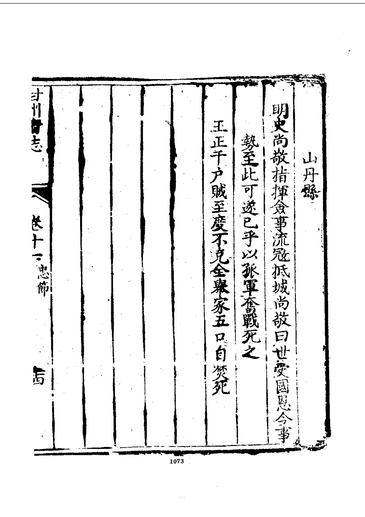 山丹縣
明史尚敬指揮僉事流寇抵城尚敬曰世受國恩今事
勢至此可遂已乎以孤軍奮戰死之
王正千户賊至度不克全舉家五口自焚死
甘州府志
卷十一
忠節
十四
1073